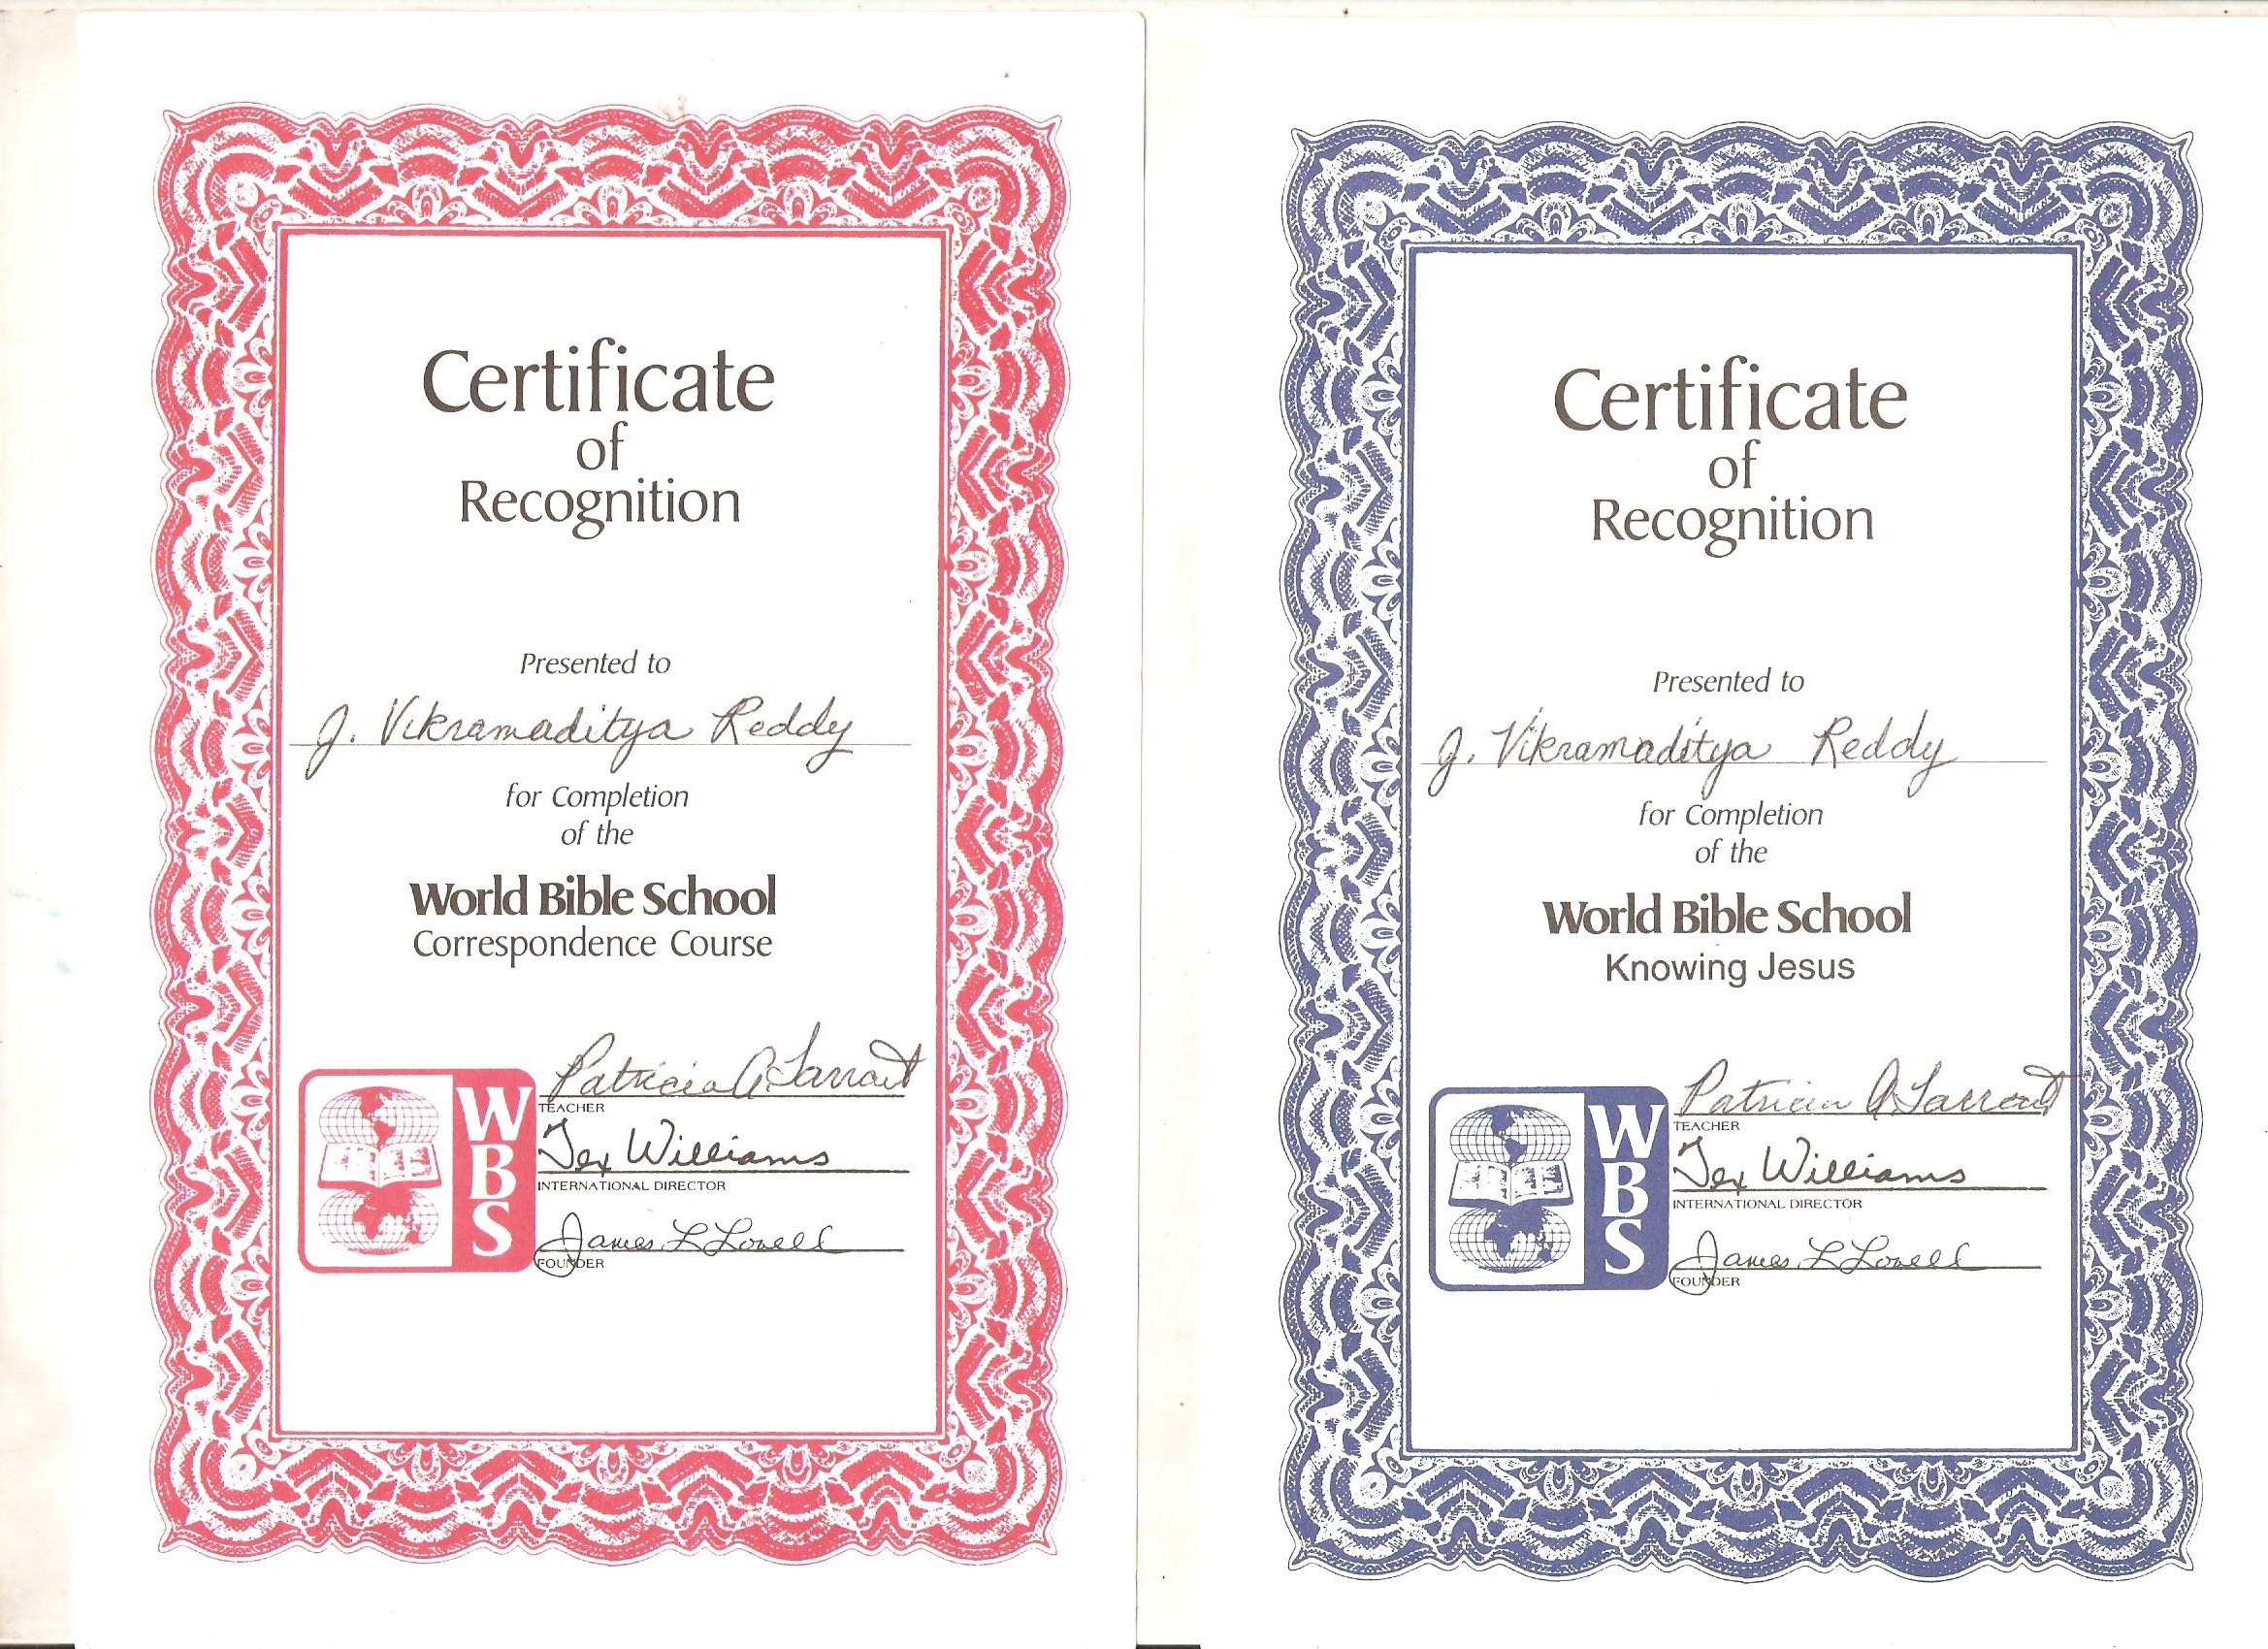 Certificate
of
Recognition
Presented to
J. Vikramaditya Reddy
for Completion
of the
World Bible School
Correspondence Course
WBS
Patricia A
TEACHER
Tex Williams
INTERNATIONAL DIRECTOR
James L Lovell
FOUNDER
Certificate
of
Recognition
Presented to
J. Vikramaditya Reddy
for Completion
of the
World Bible School
Knowing Jesus
WBS
Patricia A
TEACHER
Tex Williams
INTERNATIONAL DIRECTOR
James L Lovell
FOUNDER